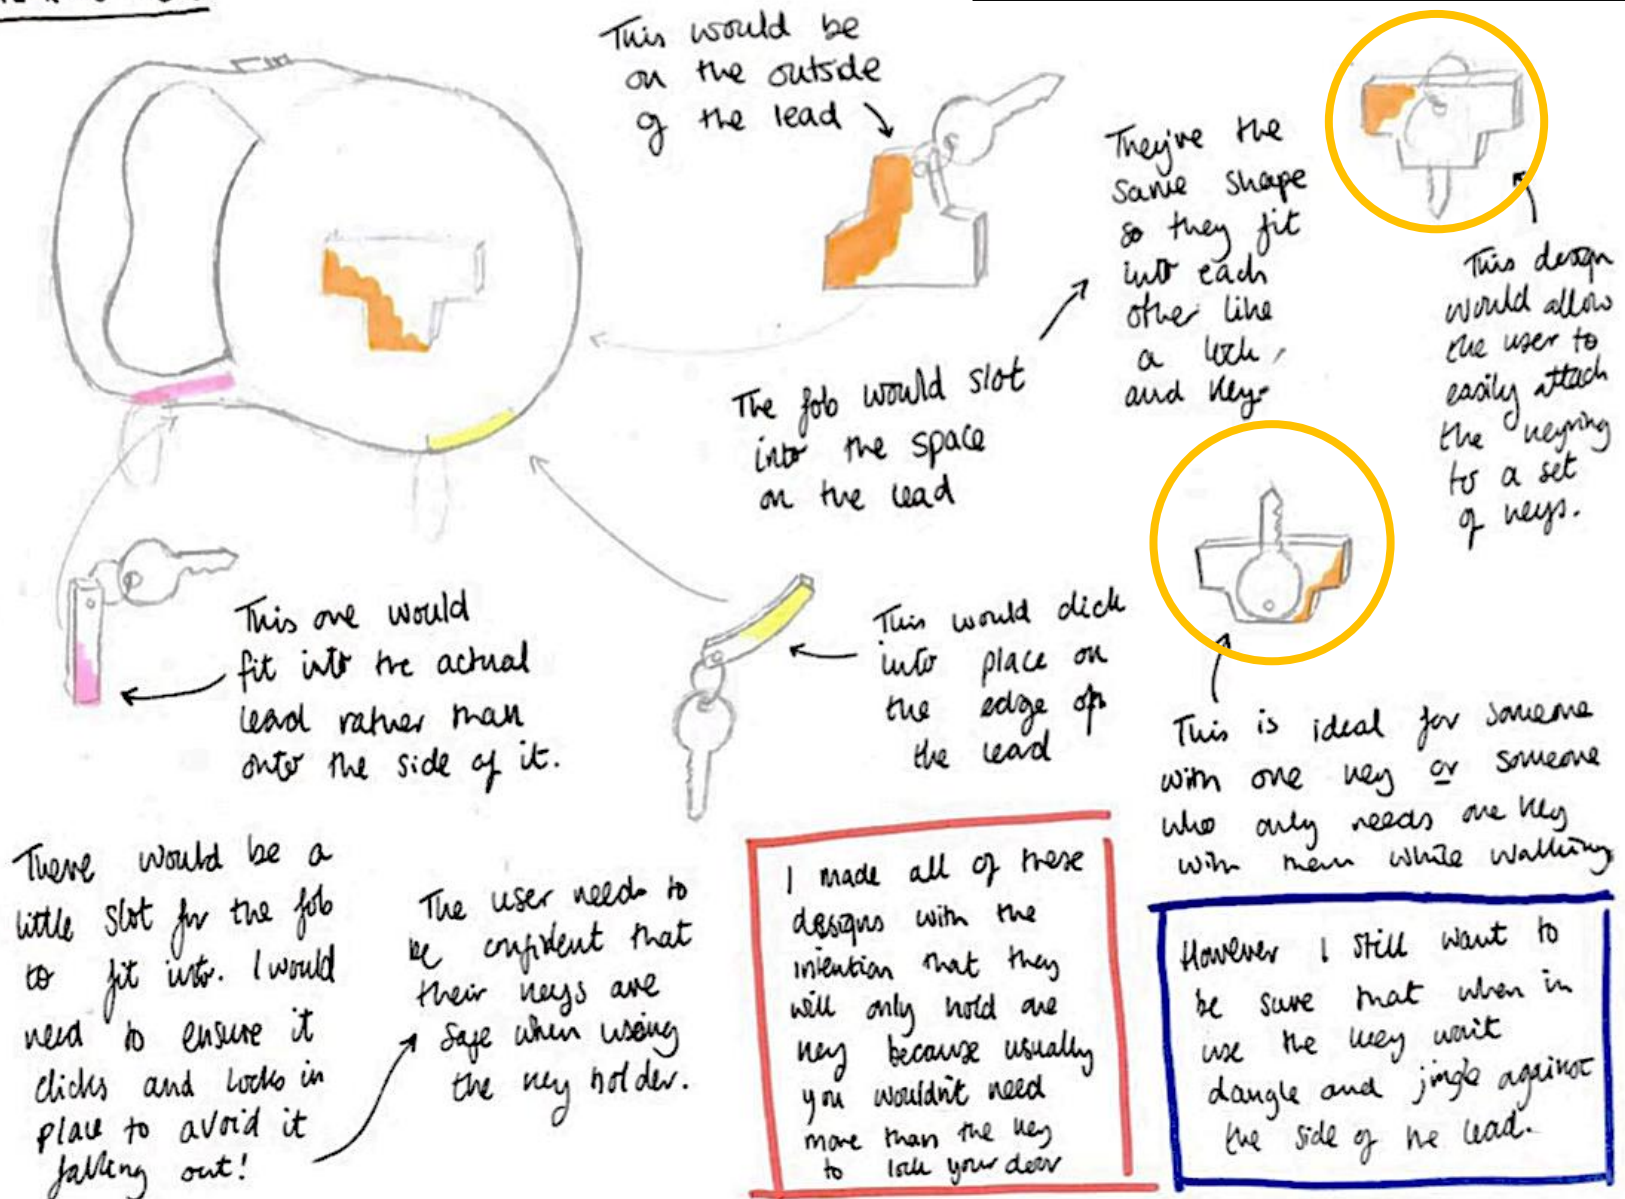 This would be
on the outside
of the lead
They're the
same shape
so they fit
into each
other like
a lock
and key.
This design
would allow
the user to
easily attach
the keyring
to a set
of keys.
The fob would slot
into the space
on the lead
This one would
fit into the actual
lead rather than
onto the side of it.
This would click
into place on
the edge of
the lead
This is ideal for someone
with one key or someone
who only needs one key
with them while walking
There would be a
little slot for the fob
to fit into. I would
need to ensure it
clicks and locks in
place to avoid it
falling out!
The user needs to
be confident that
their keys are
safe when using
the key holder.
I made all of these
designs with the
intention that they
will only hold one
key because usually
you wouldn't need
more than the key
to lock your door
However I still want to
be sure that when in
use the key won't
dangle and jingle against
the side of the lead.